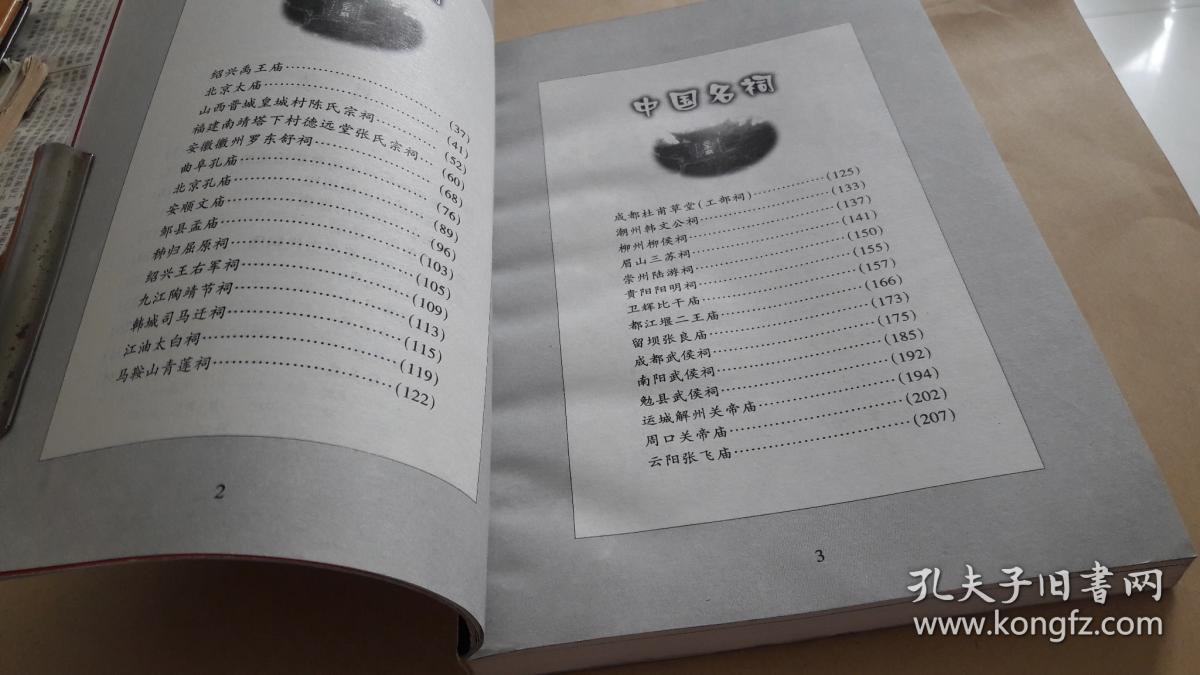 绍兴禹王庙……………………(37)
北京太庙……………………(41)
山西晋城皇城村陈氏宗祠…………(52)
福建南靖塔下村德远堂张氏宗祠……(60)
安徽徽州罗东舒祠………………(68)
曲阜孔庙……………………(76)
北京孔庙……………………(89)
安顺文庙……………………(96)
邹县孟庙……………………(103)
秭归屈原祠……………………(105)
绍兴王右军祠…………………(109)
九江陶靖节祠…………………(113)
韩城司马迁祠…………………(115)
江油太白祠……………………(119)
马鞍山青莲祠…………………(122)
2
中国名祠
成都杜甫草堂(工部祠)……………(125)
潮州韩文公祠…………………(133)
柳州柳侯祠……………………(137)
眉山三苏祠……………………(141)
崇州陆游祠……………………(150)
贵阳阳明祠……………………(155)
卫辉比干庙……………………(157)
都江堰二王庙…………………(166)
留坝张良庙……………………(173)
成都武侯祠……………………(175)
南阳武侯祠……………………(185)
勉县武侯祠……………………(192)
运城解州关帝庙………………(194)
周口关帝庙……………………(202)
云阳张飞庙……………………(207)
3
孔夫子旧书网
www.kongfz.com